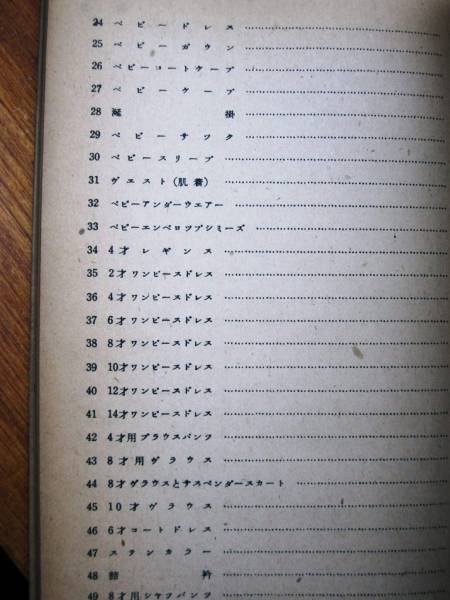 24 ベビードレス
25 ベビーガウン
26 ベビーコートケープ
27 ベビーケープ
28 涎掛
29 ベビーサック
30 ベビースリープ
31 ヴェスト(肌着)
32 ベビーアンダーウエアー
33 ベビーエンベロップシミーズ
34 4才レギンス
35 2才ワンピースドレス
36 4才ワンピースドレス
37 6才ワンピースドレス
38 8才ワンピースドレス
39 10才ワンピースドレス
40 12才ワンピースドレス
41 14才ワンピースドレス
42 4才用ブラウスパンツ
43 8才用ヴラウス
44 8才ヴラウスとサスペンダースカート
45 10才ヴラウス
46 6才コートドレス
47 ステンカラー
48 詰衿
49 8才用シャツパンツ